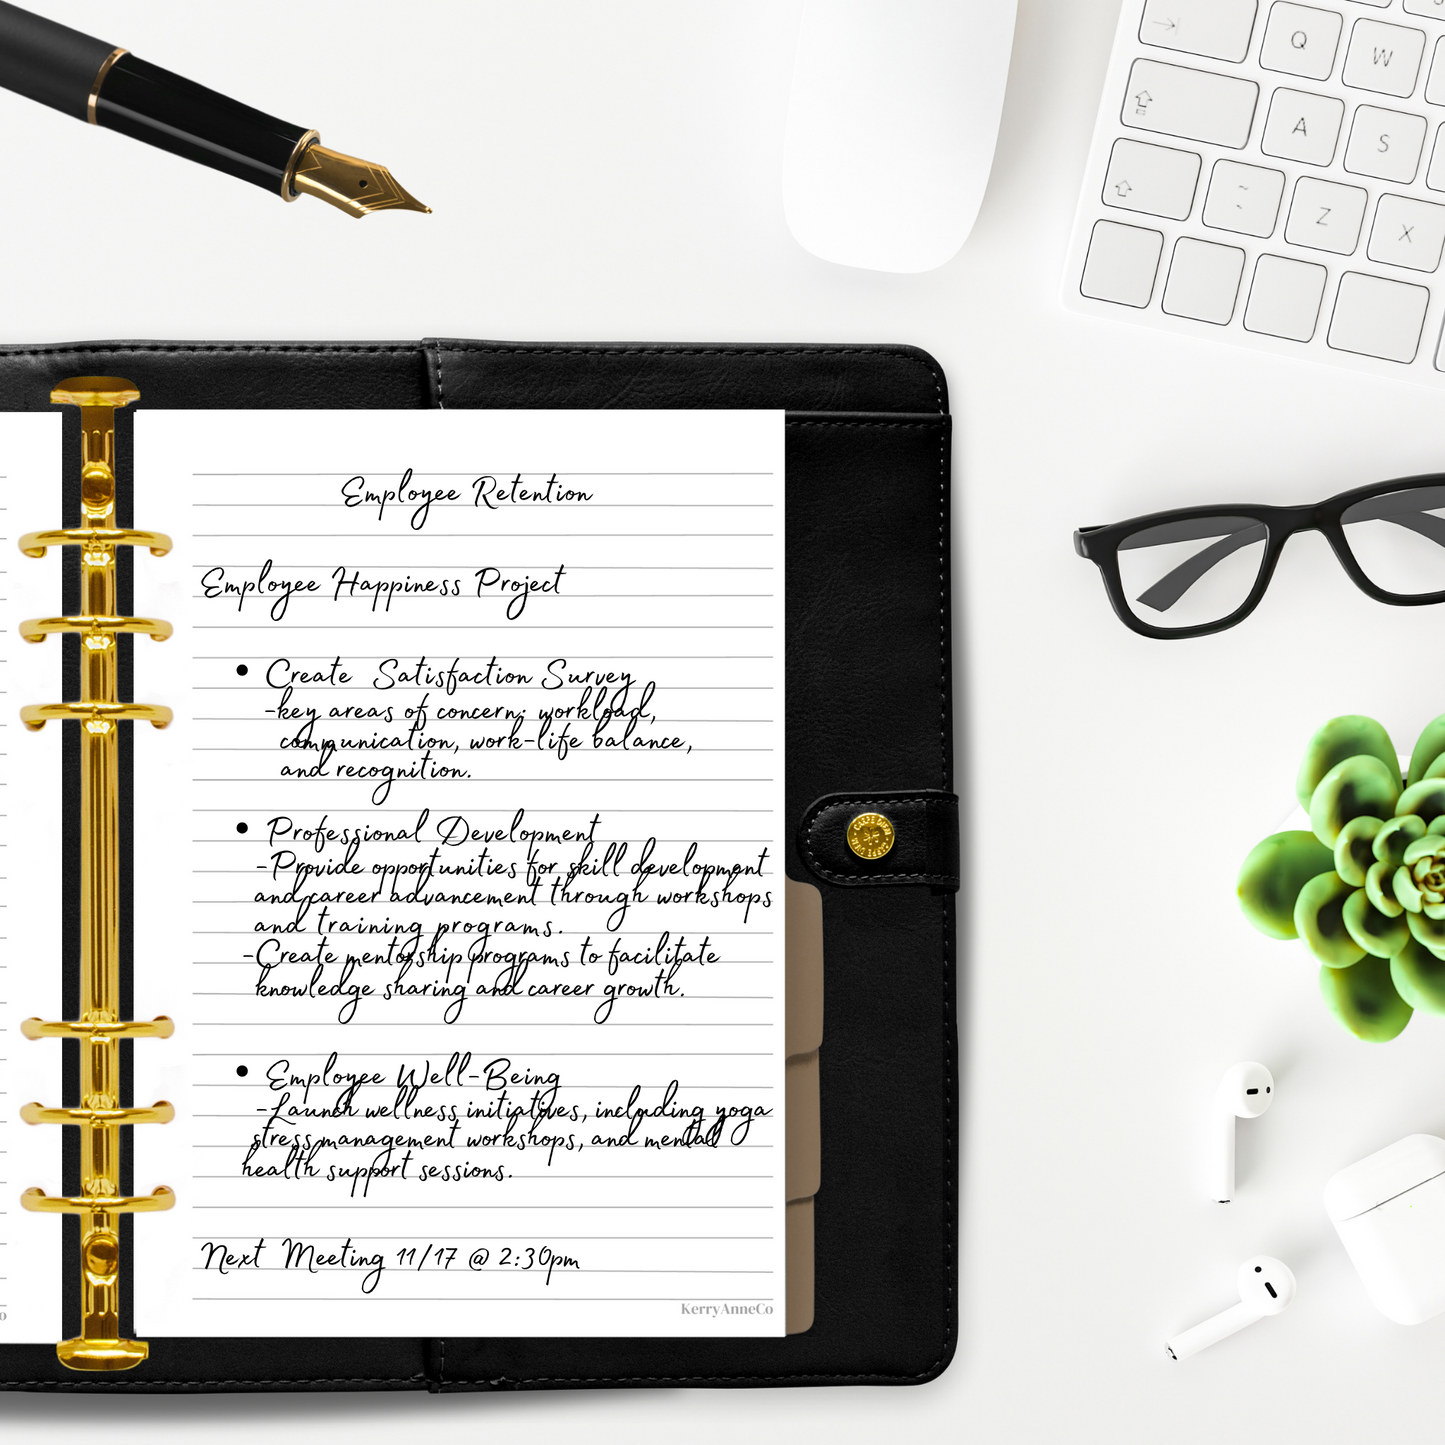 Employee Retention
Employee Happiness Project
• Create Satisfaction Survey
-key areas of concern: workload,
communication, work-life balance,
and recognition.
• Professional Development
-Provide opportunities for skill development
and career advancement through workshops
and training programs.
-Create mentorship programs to facilitate
knowledge sharing and career growth.
• Employee Well-Being
-Launch wellness initiatives, including yoga
stress management workshops, and mental
health support sessions.
Next Meeting 11/17 @ 2:30pm
KerryAnneCo
o
CARPE DIEM
Q
W
A
S
Z
X